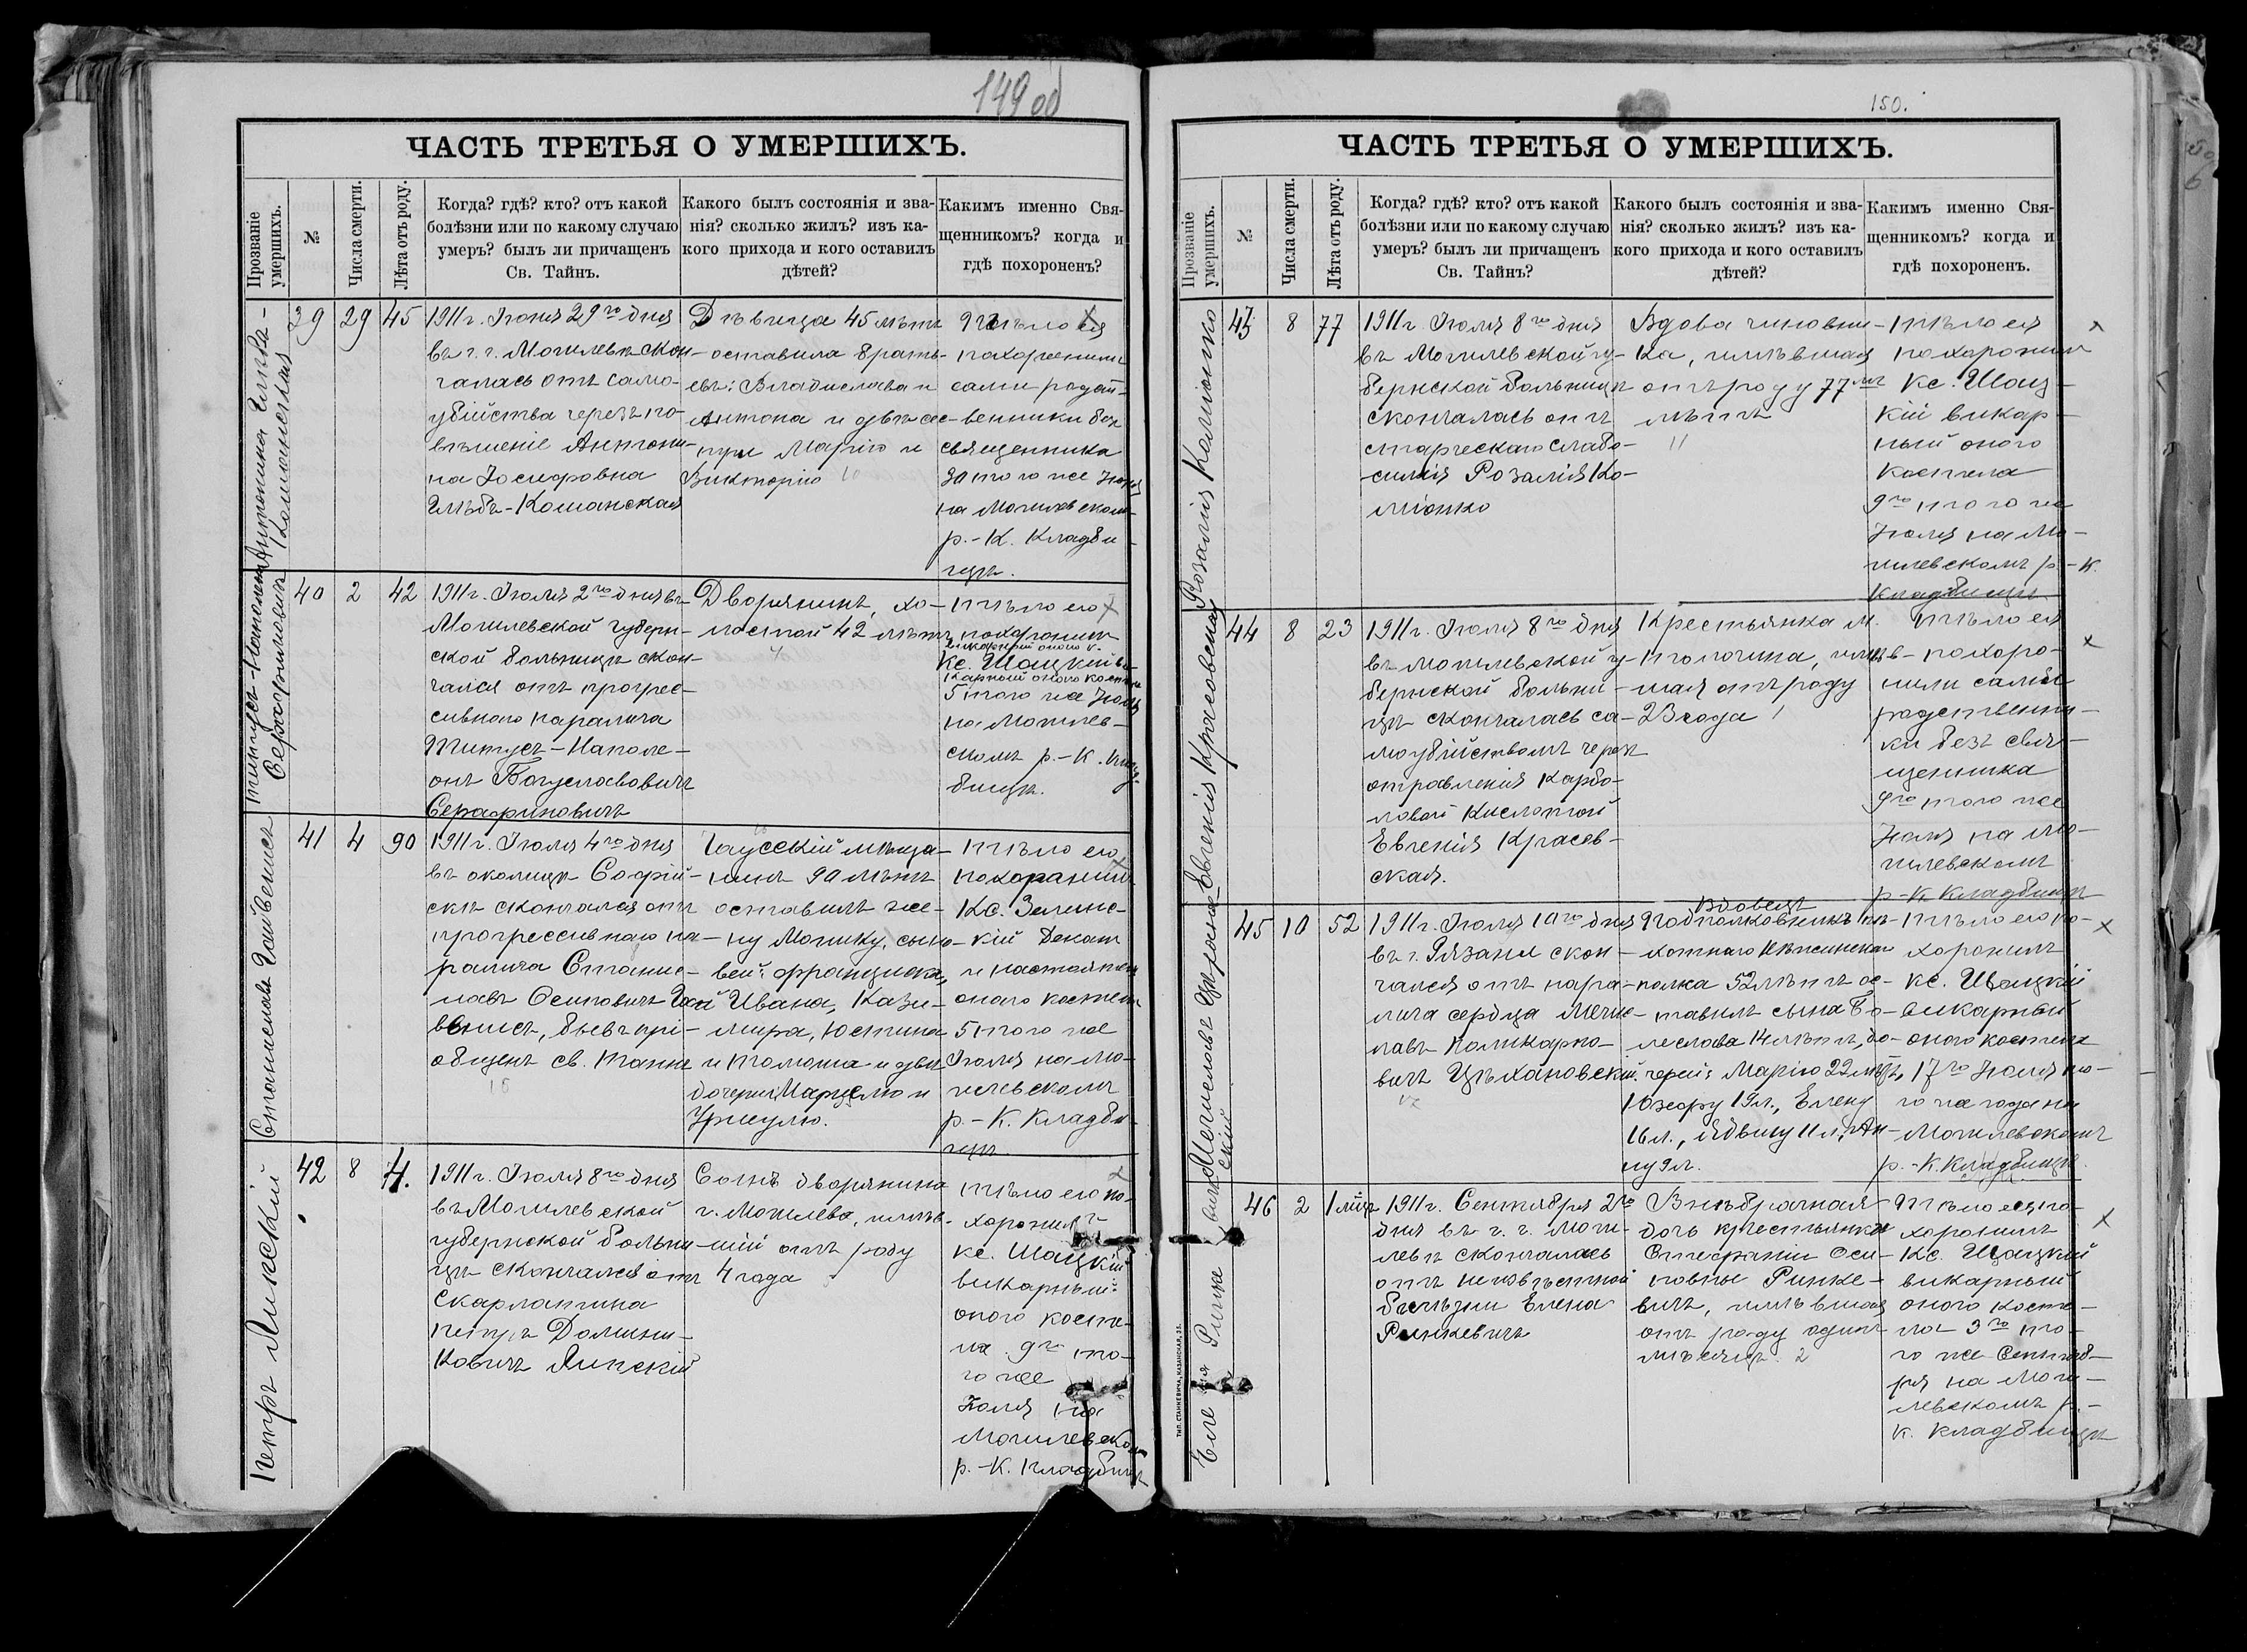 149 об
ЧАСТЬ ТРЕТЬЯ О УМЕРШИХЪ.
Прозваніе умершихъ.
№
Числа смерти.
Лѣта отъ роду.
Когда? гдѣ? кто? отъ какой
болѣзни или по какому случаю
умеръ? былъ ли причащенъ
Св. Тайнъ.
Какого былъ состоянія и зва-
нія? сколько жилъ? изъ ка-
кого прихода и кого оставилъ
дѣтей?
Какимъ именно Свя-
щенникомъ? когда и
гдѣ похороненъ?
39
29
45
1911 г. Іюня 29го дня
въ г. г. Могилевѣ скон-
чалась отъ само-
убійства черезъ по-
вѣшеніе Антони-
на Іосифовна
Команская
Дѣвица 45 лѣтъ
оставила брать-
евъ: Владислава и
Антона и двѣ сес-
тры Марію и
Викторію
тѣло ея
похоронили
сами родст-
венники безъ
священника
30 того же Іюня
на Могилевском
р.-К. Кладби-
щѣ.
Титусъ-Наполеонъ
Серафиновичъ
40
2
42
1911 г. Іюля 2го дня въ
Могилевской губерн-
ской больницѣ скон-
чался отъ прогрес-
сивного паралича
Титусъ-Наполе-
онъ Богуславовичъ
Серафиновичъ
Дворянинъ, хо-
лостой 42 лѣтъ
тѣло его
похоронилъ
викарный оного к.
Кс. Шацкій ви-
карный оного костела
5 того же Іюля
на Могилев-
скомъ р.-К. клад-
бищѣ.
Станислава
41
4
90
1911 г. Іюля 4го дня
въ околицѣ Софій-
скѣ скончался отъ
прогрессивнаго па-
ралича Станис-
лавъ Осиповичъ Гай
венисъ, бывъ прі-
общенъ св. Таинъ
Чаусскій мѣща-
нинъ 90 лѣтъ
оставилъ же-
ну Монику, сыно-
вей: Франциска,
Ивана, Кази-
мира, Юстина
и Томаша и двѣ
дочери Марцелю и
Урсулю.
тѣло его
похоронилъ
Кс. Зелинс-
кій Декан
и настоятель
оного костела
5 того же
Іюля на Мо-
гилевскомъ
р.-К. Кладби-
щѣ.
Петръ Липскій
42
8
4.
1911 г. Іюля 8го дня
въ Могилевской
губернской больни-
цѣ скончался отъ
Скарлатина
Петръ Домини-
ковичъ Липскій
Сынъ дворянина
г. Могилева, имѣв-
шій отъ роду
4 года
тѣло его по-
хоронилъ
Кс. Шацкій
викарный
оного косте-
ла 9го то-
го же
Іюля на
Могилевском
р.-К. Кладбищѣ
150.
ЧАСТЬ ТРЕТЬЯ О УМЕРШИХЪ.
Прозваніе умершихъ.
№
Числа смерти.
Лѣта отъ роду.
Когда? гдѣ? кто? отъ какой
болѣзни или по какому случаю
умеръ? былъ ли причащенъ
Св. Тайнъ?
Какого былъ состоянія и зва-
нія? сколько жилъ? изъ ка-
кого прихода и кого оставилъ
дѣтей?
Какимъ именно Свя-
щенникомъ? когда и
гдѣ похороненъ.
Розалія Коліонко
43
8
77
1911 г. Іюля 8го дня
въ Могилевской гу-
бернской больницѣ
скончалась отъ
старческаго слабо-
силія Розалія Ко-
ліонко
Вдова чиновни-
ка, имѣвшая
отъ роду 77
лѣтъ
тѣло ея
похоронилъ
Кс. Шац-
кій викар-
ный оного
костела
9го того же
Іюля на Мо-
гилевскомъ р.-К.
Кладбищѣ
Евгенія Красовская
44
8
23
1911 г. Іюля 8го дня
въ Могилевской гу-
бернской больни-
цѣ скончалась са-
моубійствомъ через
отравленія карбо-
ловой кислотой
Евгенія Красов-
ская.
Крестьянка м.
Толочина, имѣв-
шая отъ роду
23 года
тѣло ея
похоро-
нили сами
родственни-
ки безъ свя-
щенника
9го того же
Іюля на Мо-
гилевскомъ
р.-К. Кладбищѣ
Мечиславъ Цѣхановскій
45
10
52
1911 г. Іюля 10го дня
въ г. Рязани скон-
чался отъ пара-
лича сердца Мечис-
лавъ Поликарпо-
вичъ Цѣхановскій.
Вдовецъ
Подполковникъ пѣ-
хотного Нѣжинскаго
полка 52 лѣтъ ос-
тавилъ сына Бо-
леслава 14 лѣтъ, до-
черей: Марію 22 лѣтъ,
Юзефу 19 л., Елену
16 л., Ядвигу 11 л., Ан-
ну 9 л.
тѣло его по-
хоронилъ
Кс. Шацкій
викарный
оного костела
17го Іюля то-
го же года на
Могилевскомъ
р.-К. Кладбищѣ
46
2
1 мѣц
1911 г. Сентября 2го
дня въ г. г. Моги-
левѣ скончалась
отъ неизвѣстной
болѣзни Елена
Ринкевичъ
Внѣбрачная
дочь крестьянки
Стефаніи Оси-
повны Ринке-
вичъ, имѣвшая
отъ роду одинъ
мѣсяцъ.
Тѣло ея по-
хоронилъ
Кс. Шацкій
викарный
оного косте-
ла 3го то-
го же Сентяб-
ря на Моги-
левскомъ р.-
К. Кладбищѣ
ТИП. СТАНКЕВИЧА, КАЗАНСКАЯ, 35.